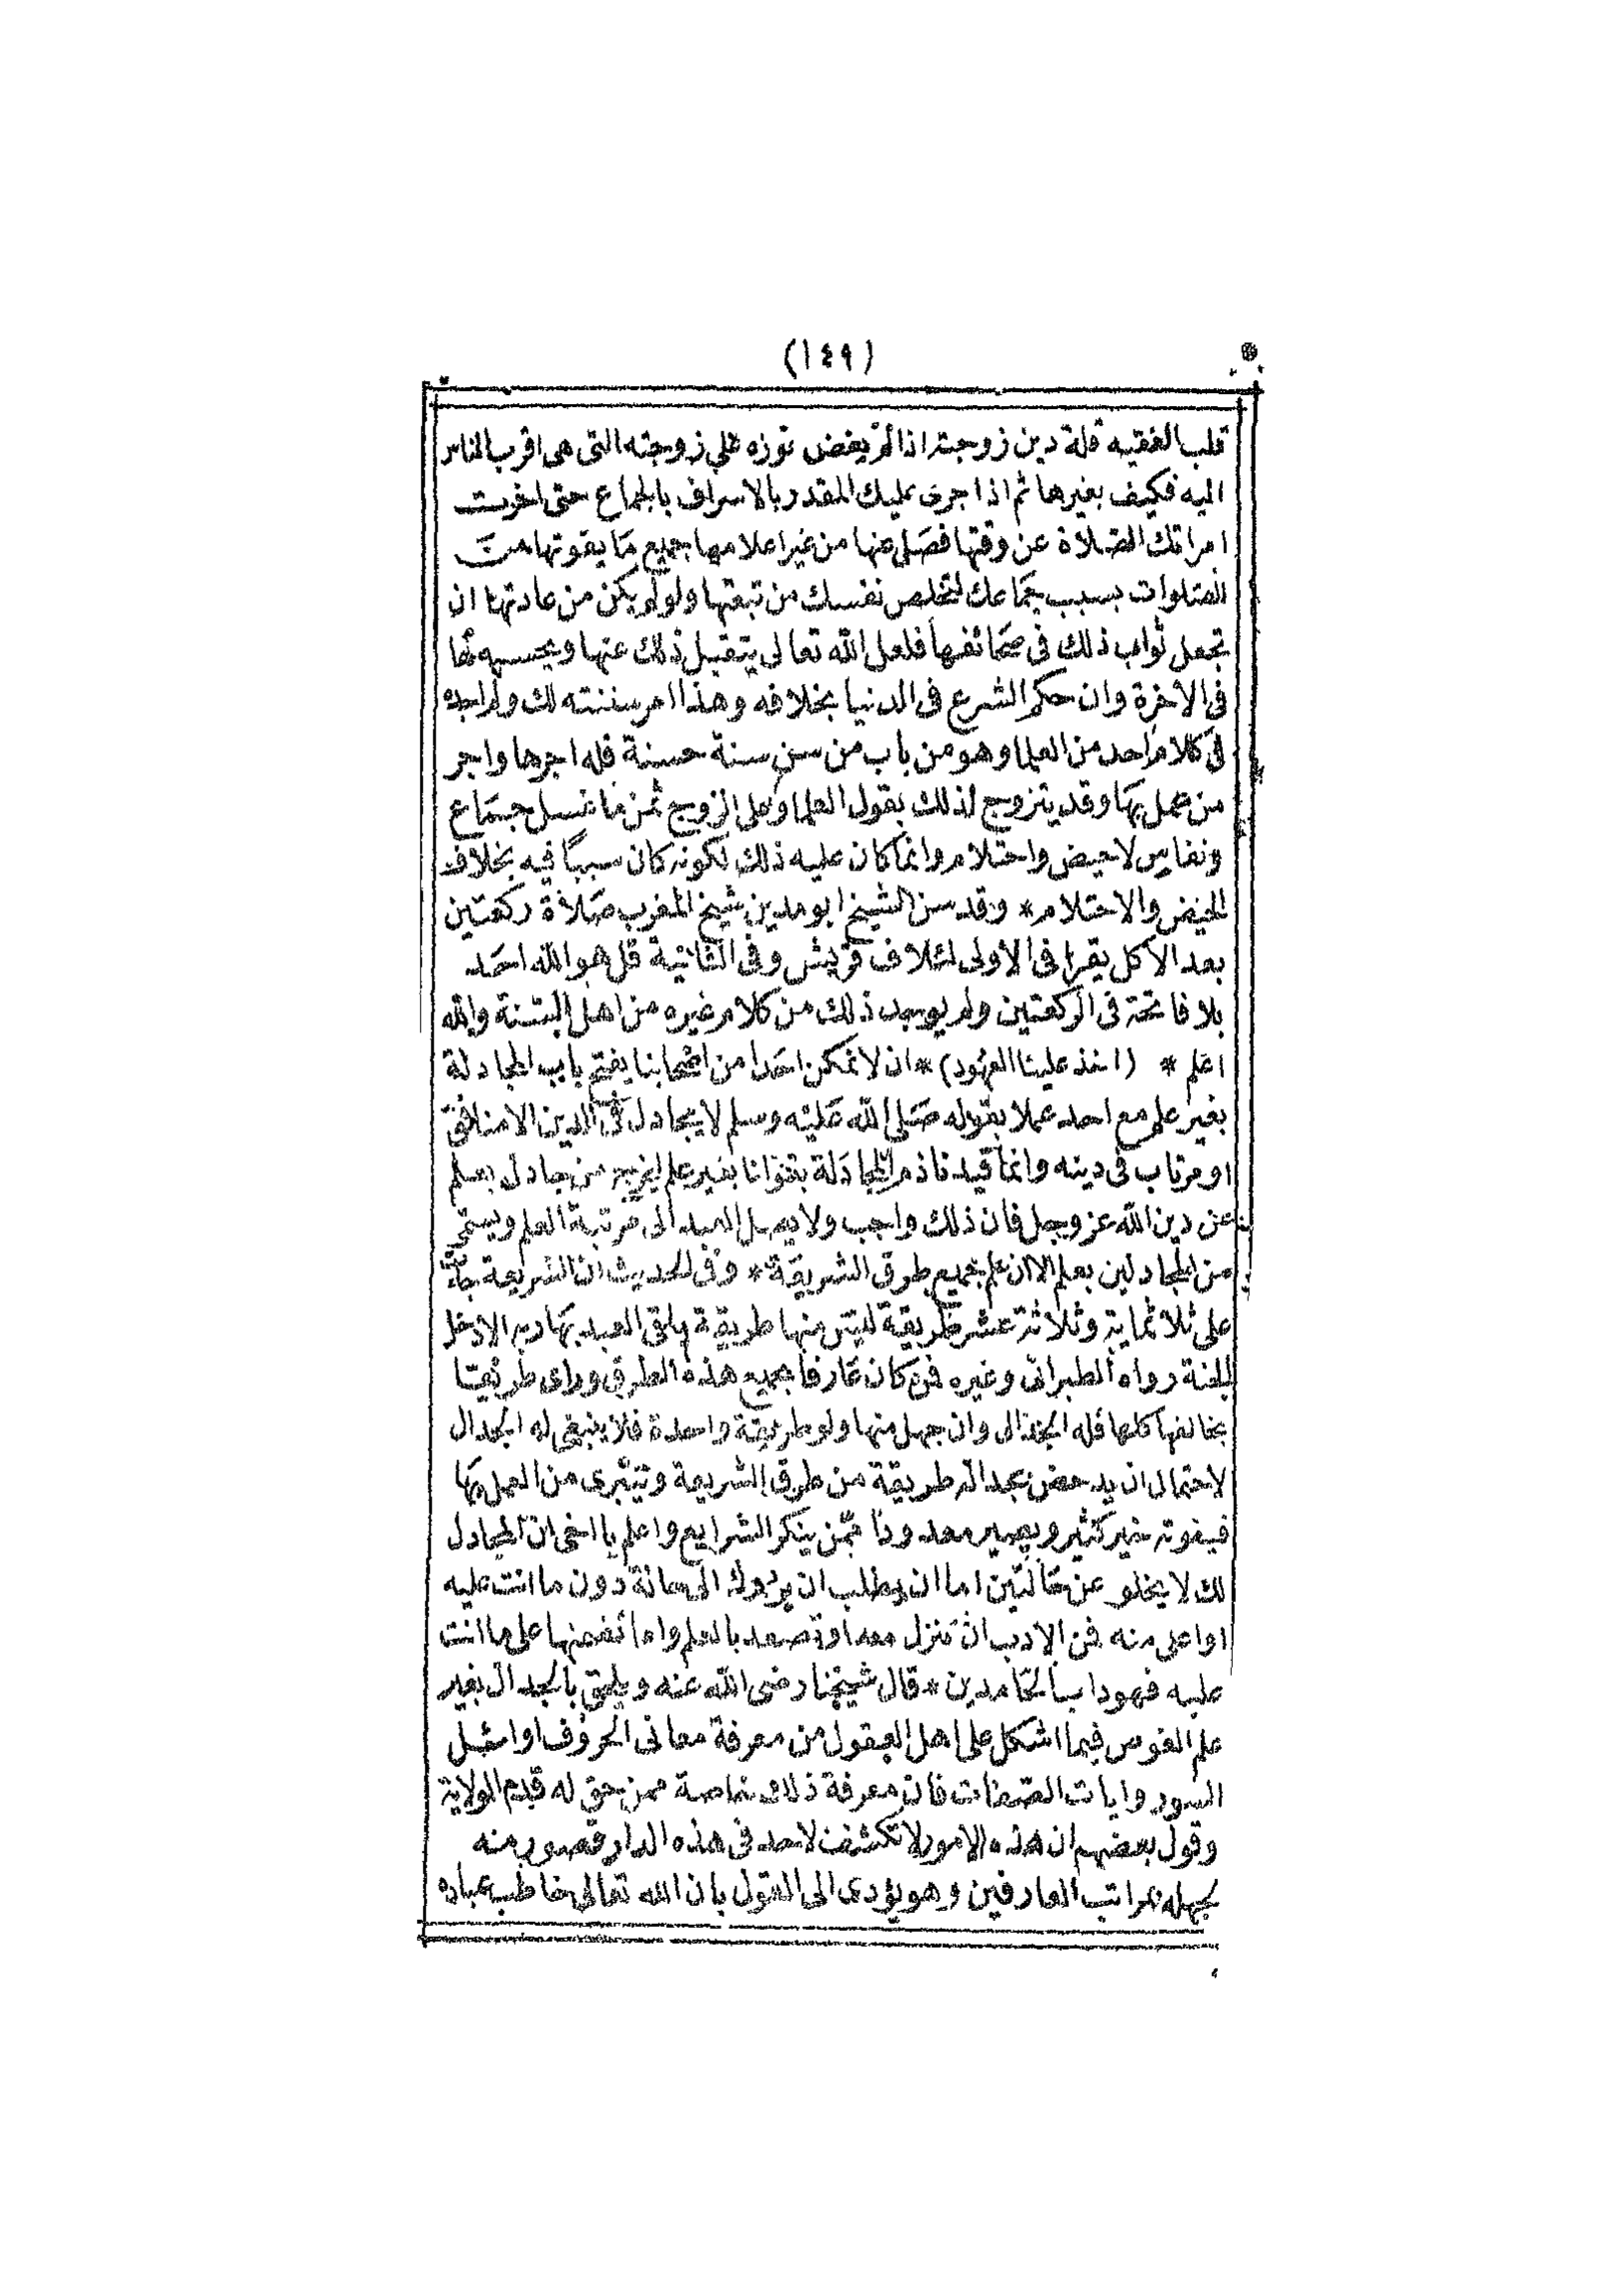 (١٤٩)
قلب الفقيه قلة دين زوجته اذا لم يفض نوره على زوجته التى هى اقرب الناس
اليه فكيف بغيرها ثم اذا جرى عليك المقدر بالاسراف بالجماع حتى اخرت
امراتك الصلاة عن وقتها فصلى عنها من غير اعلامها جميع ما يفوتها من
الصلوات بسبب جماعك لتخلص نفسك من تبعتها ولو لم يكن من عادتها ان
تجعل ثواب ذلك فى صحائفها فلعل الله تعالى يتقبل ذلك عنها ويحسبه لها
فى الاخرة وان حكم الشرع فى الدنيا بخلافه وهذا امر سننته لك ولم اجده
فى كلام احد من العلما وهو من باب من سن سنة حسنة فله اجرها واجر
من عمل بها وقد يتزوج لذلك بقول العلما وعلى الزوج ثمن ما غسل جماع
ونفاس لا حيض واحتلام وانما كان عليه ذلك لكونه كان سببا فيه بخلاف
الحيض والاحتلام * وقد سن الشيخ ابو مدين شيخ المغرب صلاة ركعتين
بعد الاكل يقرا فى الاولى لئلاف قريش وفى الثانية قل هو الله احد
بلا فاتحة فى الركعتين ولم يوجد ذلك من كلام غيره من اهل السنة والله
اعلم * (اخذ علينا العهود) * ان لا نمكن احدا من اصحابنا يفتح باب المجادلة
بغير علم مع احد عملا بقوله صلى الله عليه وسلم لا يجادل فى الدين الا منافق
او مرتاب فى دينه وانما قيدنا ذم المجادلة بقولنا بغير علم ليخرج من جادل بعلم
عن دين الله عز وجل فان ذلك واجب ولا يصل العبد الى مرتبة العلم ويسمى
من المجادلين بعلم الا ان علم جميع طرق الشريعة * وفى الحديث ان الشريعة جات
على ثلاثماية وثلاثة عشر طريقة ليس منها طريقة يلقى العبد بها ربه الا دخل
الجنة رواه الطبرانى وغيره فمن كان عارفا بجميع هذه الطرق وراى طريقا
يخالفها كلها فله الجدال وان جهل منها ولو طريقة واحدة فلا ينبغى له الجدال
لاحتمال ان يدحض بجداله طريقة من طرق الشريعة ويتبرى من العمل بها
فيفوته خير كثير ويصير معدودا ممن ينكر الشرايع واعلم يا اخى ان المجادل
لك لا يخلو عن حالتين اما ان يطلب ان يردك الى حالة دون ما انت عليه
او اعلى منه فمن الادب ان تنزل معه او تصعد بالعلم واما على ما انت
عليه فهو داب الجامدين * قال شيخنا رضى الله عنه ويلحق بالجدال بغير
علم الغوص فيما اشكل على اهل العقول من معرفة معانى الحروف اوائل
السور وايات الصفات فان معرفة ذلك خاصة ممن حق له قدم الولاية
وقول بعضهم ان هذه الامور لا تكشف لاحد فى هذه الدار قصور منه
لجهله بمراتب العارفين وهو يؤدى الى القول بان الله تعالى خاطب عباده